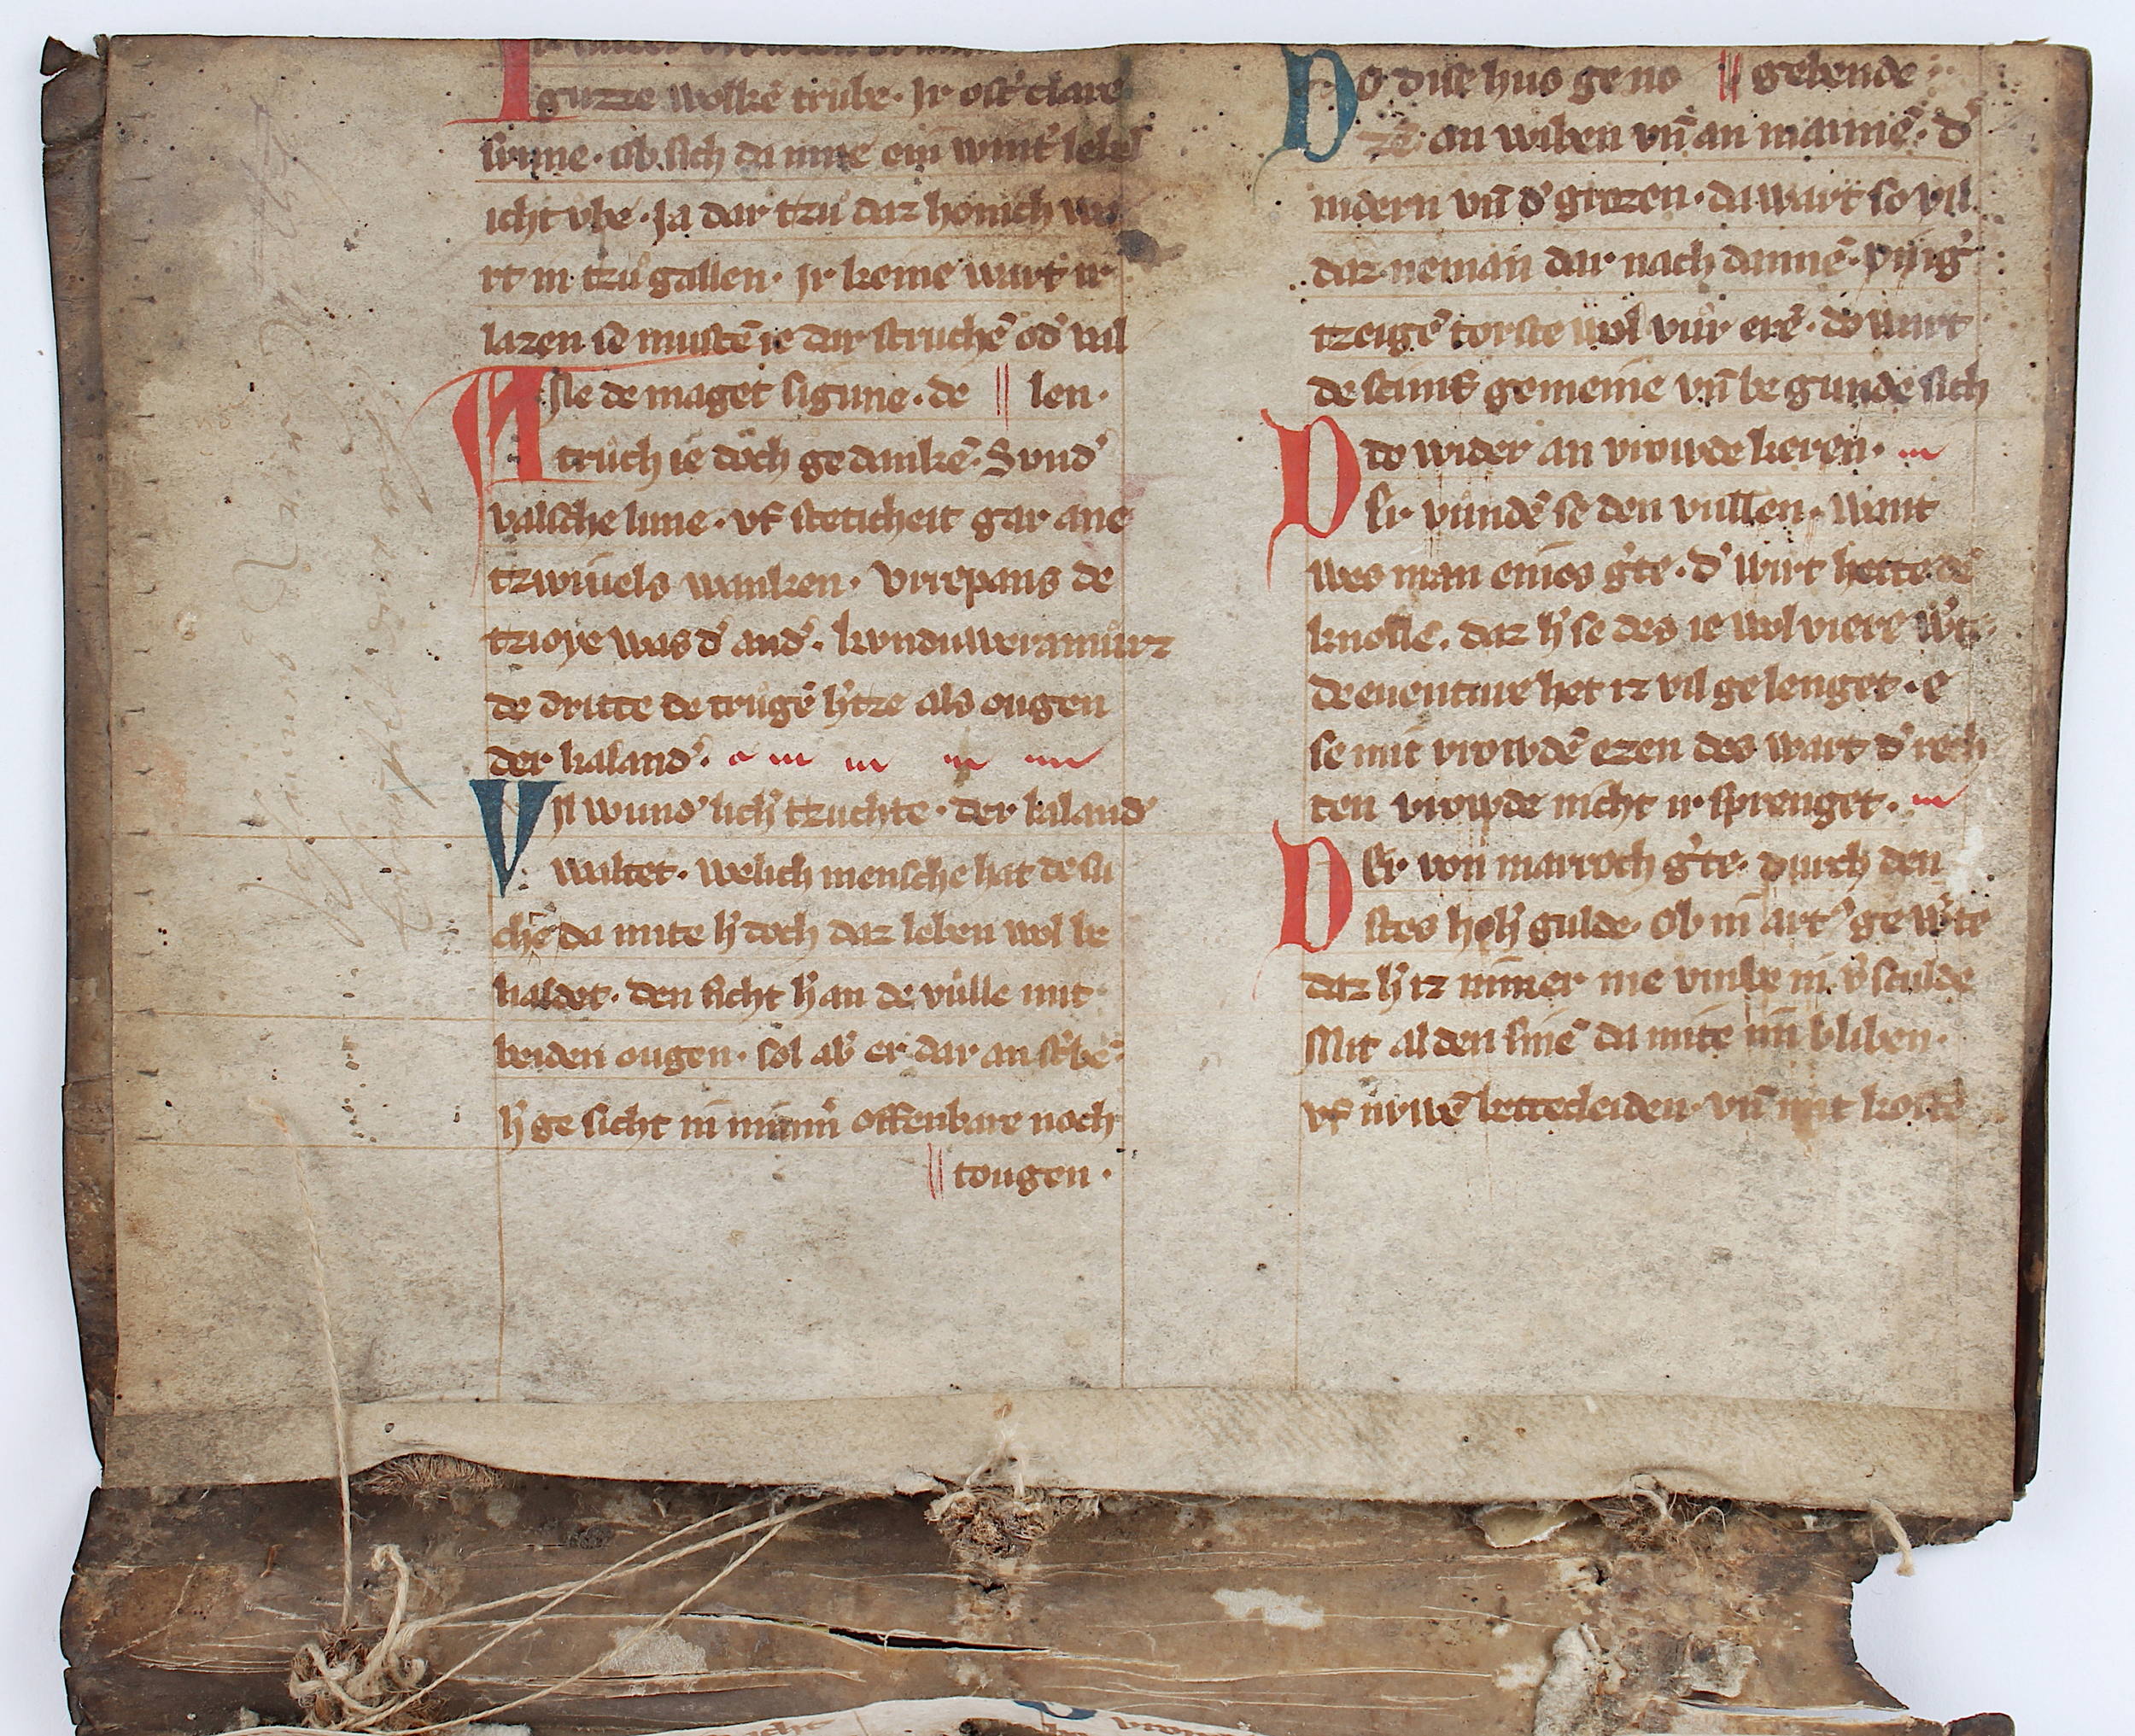 guzze wolkē trube· Jr oft' clare
sunne· ob sich da inne ein wint'
icht vbe· Ja dar tzu daz honich wa
rt in tzu gallen· Jr keine wart ir
lazen se mustē ie dar struchē od' val
Asle de maget sigune· de || len·
truch ie doch ge dankē· Sund'
valsche lune· vf steticheit gar ane
tzwiuels wanken· vrrepans de
tzioye was d' and'· kvnduweramurz
de dritte de trugē h'tze als ougen
der kaland'·
Vil wund' lich' tzuchte· der kaland'
waltet· welich mensche hat de su
che da mite h' doch daz leben wol be
haldet· den sicht h' an de vulle mit
beiden ougen· sol ab' er dar an st'bē·
h' ge sicht in nimm' offenbare noch
|| tougen·
Do dise hus ge no || gebende
zz an wiben vn̄ an mannē· d'
nidern vn̄ d' grozen· da wart so vil
daz nieman dar nach dannē· pfing'
tzeigē torste wol vur erē· do wart
de stime gemeine vn̄ be gunde sich
do wider an vrowde keren·
Der vundē se den vullen· want
wes man enies g'te· d' wirt hette de
knolle· daz h' se des ie wol viere
de euenture het iz vil ge lenget· e
se mit vrowdē ezen des wart d' rech
ten vrowde nicht ir sprenget·
Der von marroch g'te· durch den
stes hoh' gulde· Ob in art' ge w'te
daz h' iz nimer me vmbe in v' sculde
Mit al den sinē da mite im bliben·
vf nywē kettecleiden· vn̄ mit kostē